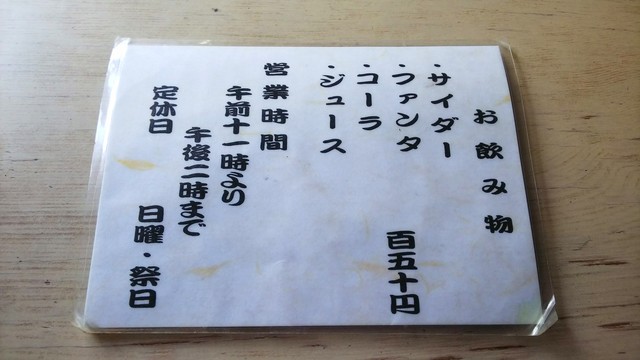 お飲み物
・サイダー
・ファンタ
・コーラ
・ジュース
百五十円
営業時間
午前十一時より
午後二時まで
定休日
日曜・祭日